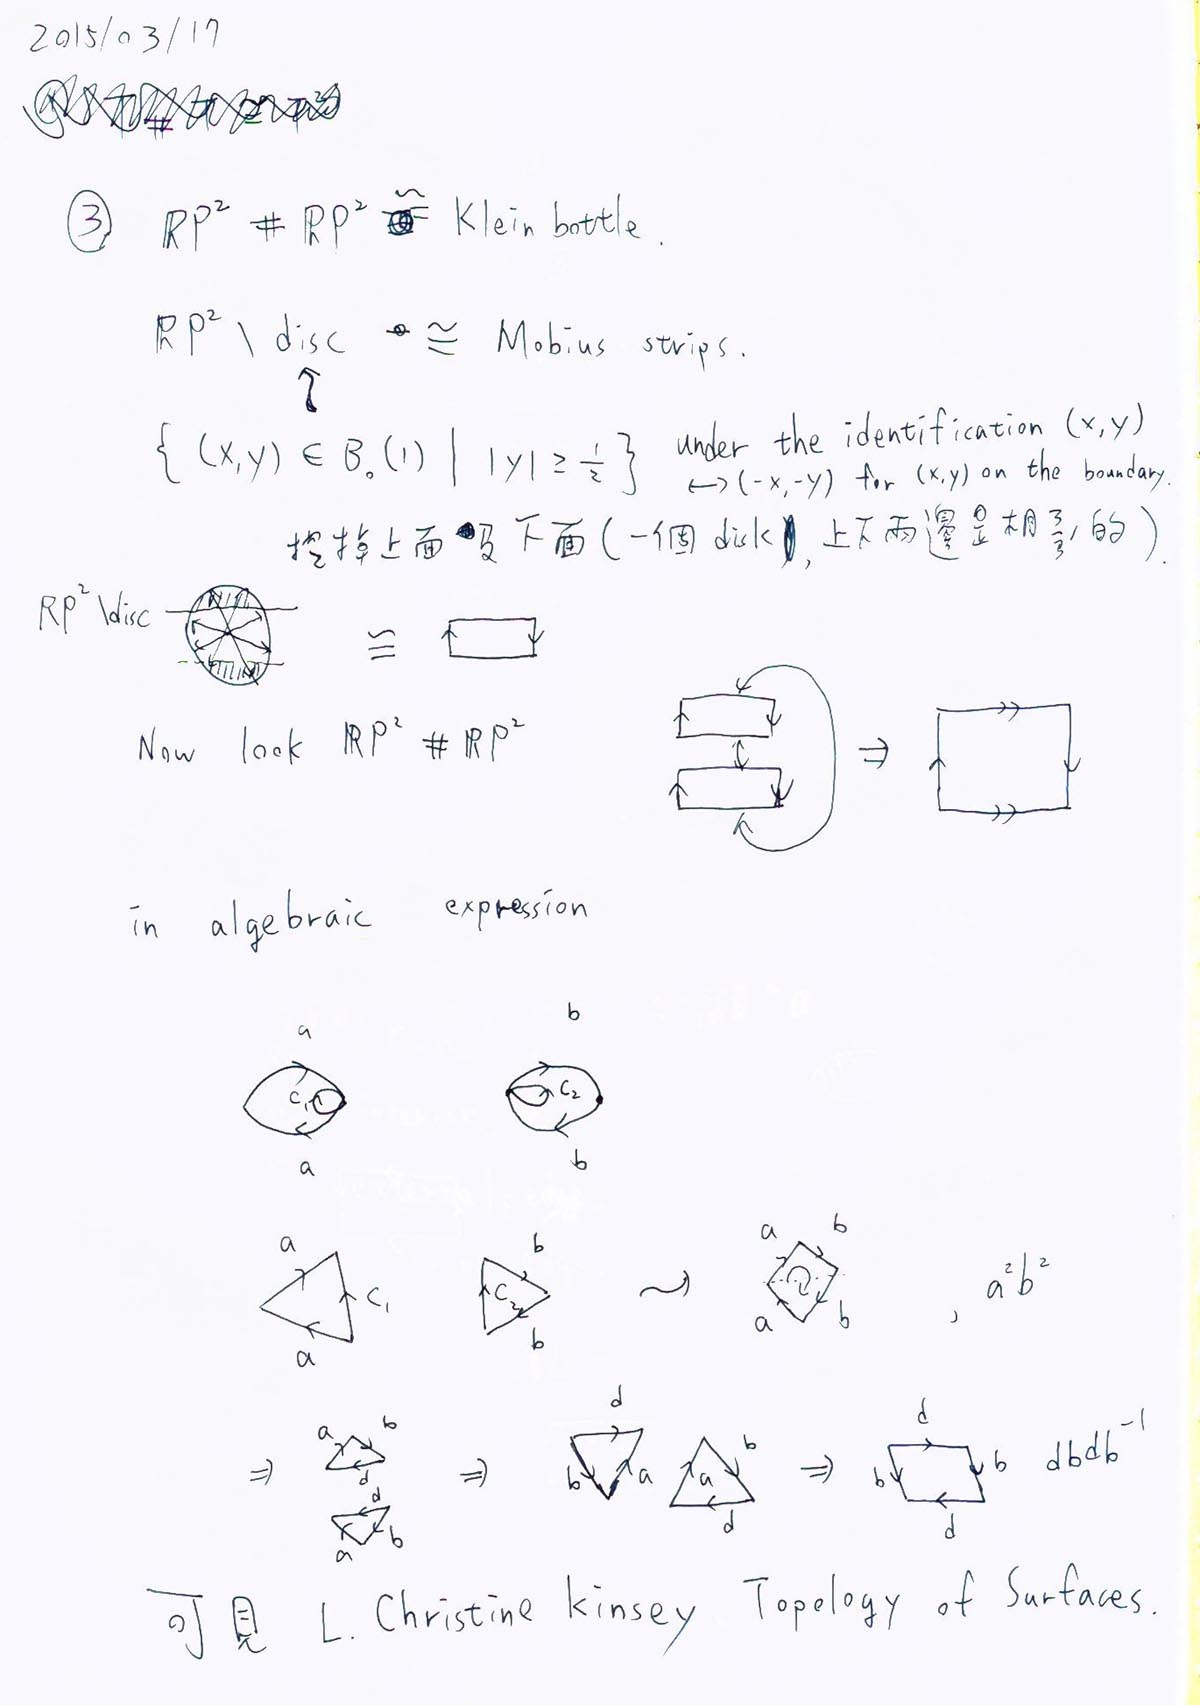 2015/03/17
③ RP² # RP² ≅ Klein bottle.
RP² \ disc ≅ Mobius strips.
{ (x,y) ∈ B₀(1) | |y| ≥ 1/2 } under the identification (x,y)
↔ (-x,-y) for (x,y) on the boundary.
挖掉上面及下面(一個disk, 上下兩邊是相黏的).
RP² \ disc ≅
Now look RP² # RP² ⇒
in algebraic expression
a b
C₁ C₂
a b
a b a b
C₁ C₂ , a²b²
a b a b
a b d d
d b a a b b b dbdb⁻¹
d
a b d d
可見 L. Christine Kinsey Topology of Surfaces.